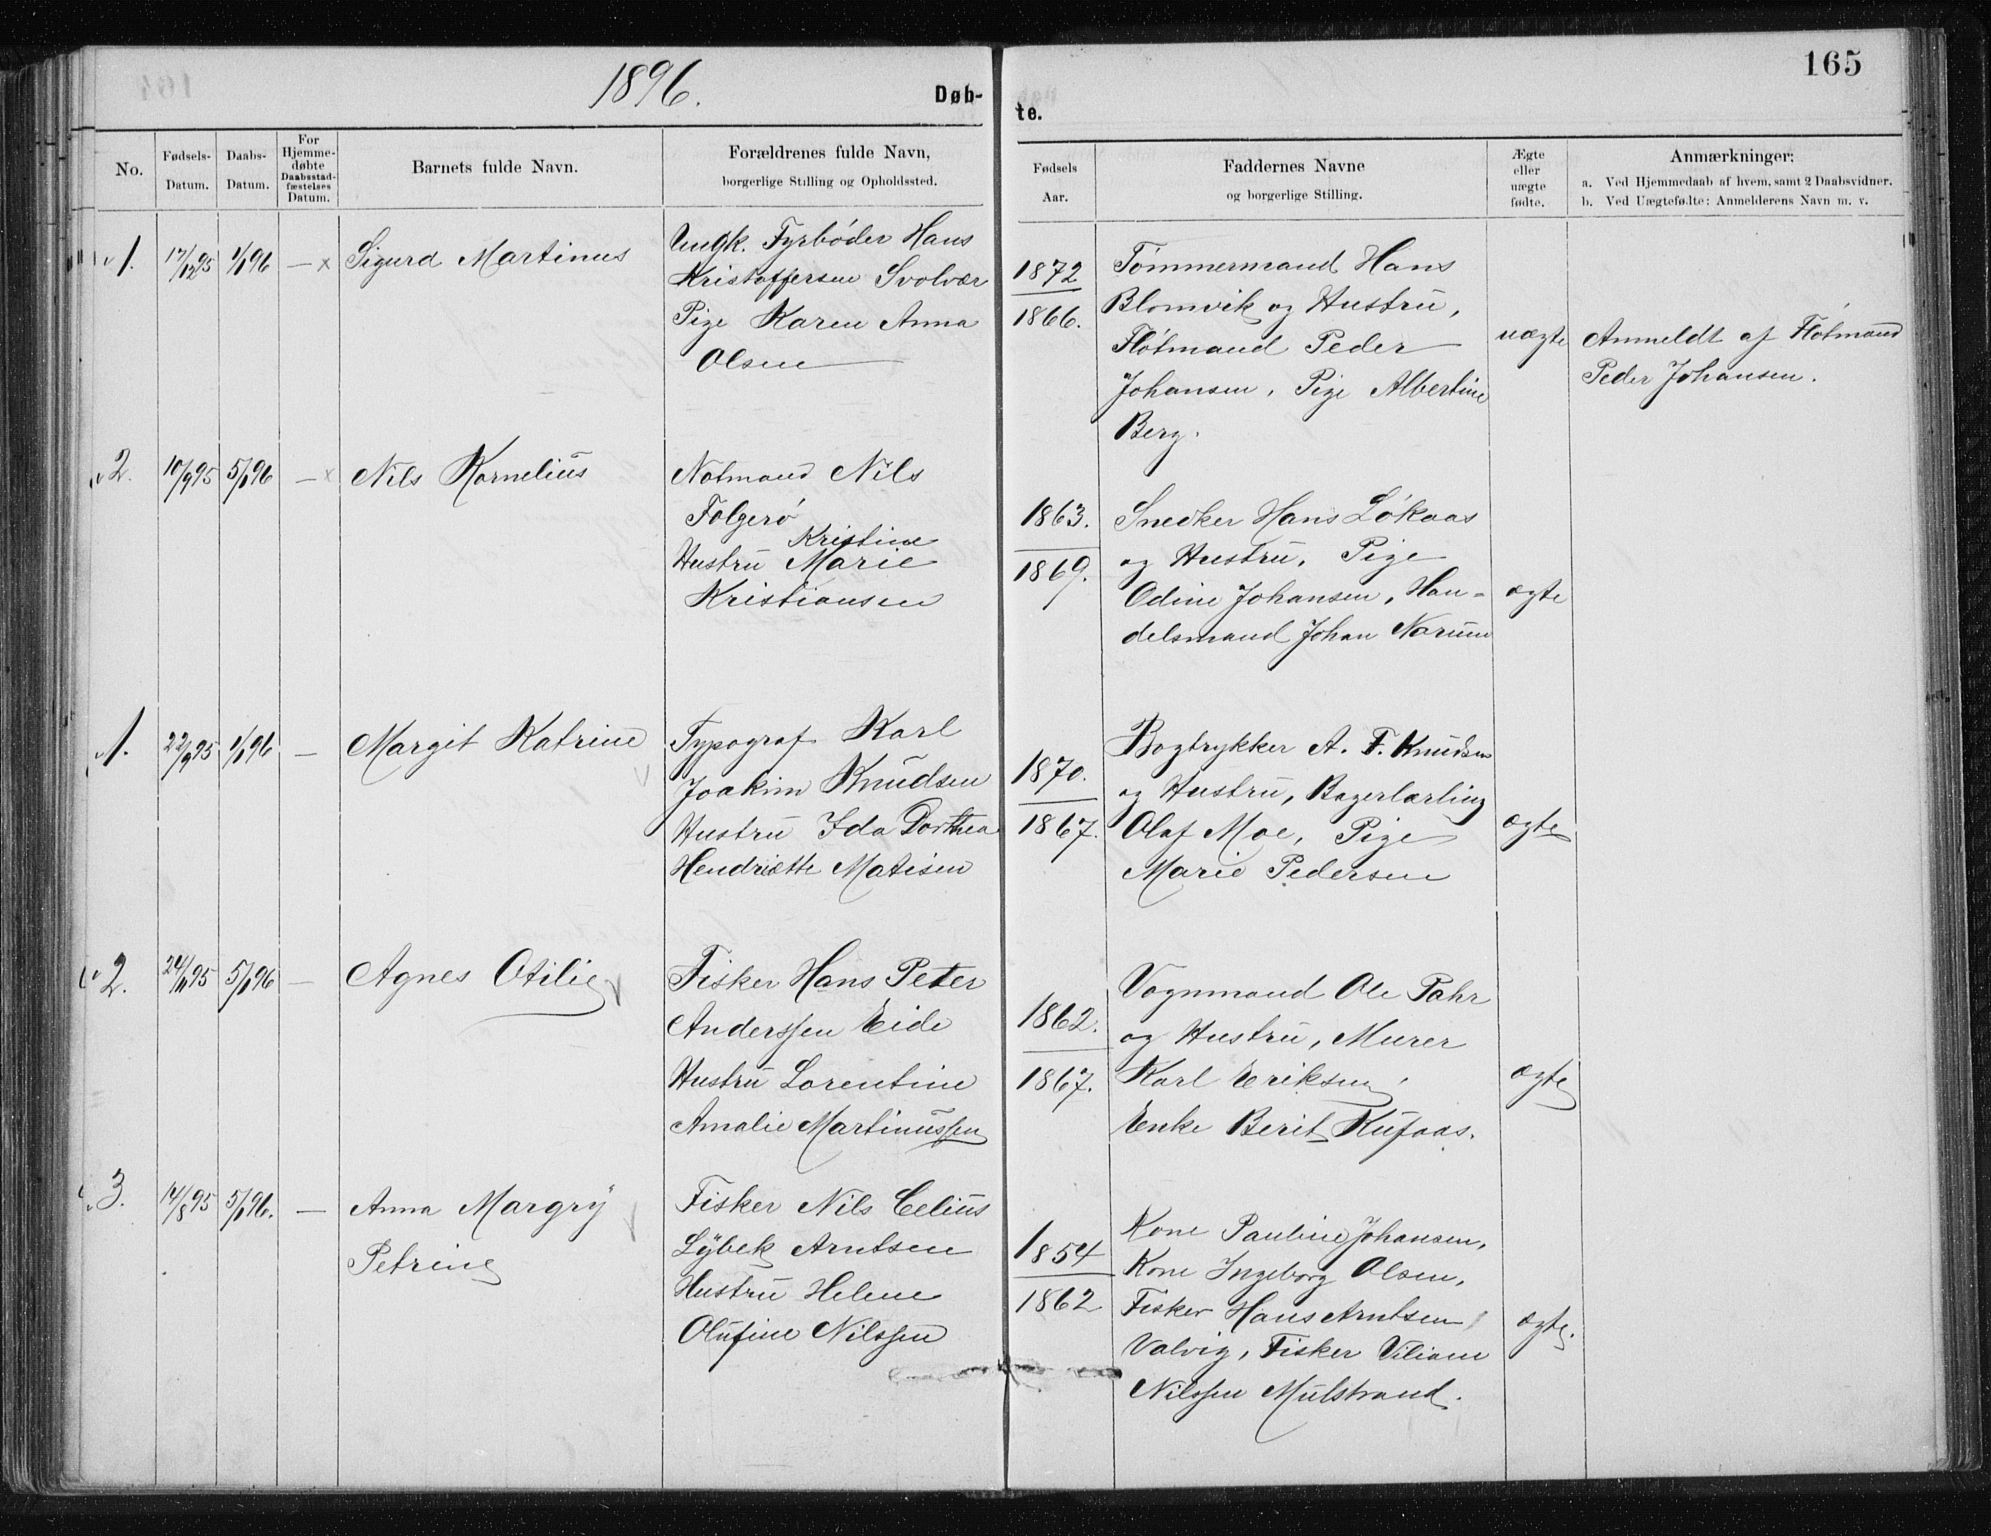 1896.
Døb-
te.
165
No.
Fødsels-
Datum.
Daabs-
Datum.
For
Hjemme-
døbte
Daabsstad-
fæstelses
Datum.
Barnets fulde Navn.
Forældrenes fulde Navn,
borgerlige Stilling og Opholdssted.
Fødsels
Aar.
Faddernes Navne
og borgerlige Stilling.
Ægte
eller
uægte
fødte.
Anmærkninger:
a. Ved Hjemmedaab af hvem, samt 2 Daabsvidner.
b. Ved Uægtefødte: Anmelderens Navn m. v.
1.
17/12 95
1/1 96
—x
Sigurd Martinus
Ungk. Fyrbøder Hans
Kristoffersen Svolvær
Pige Karen Anna
Olsen
1872
1866.
Tømmermand Hans
Blomvik og Hustru,
Fløtmand Peder
Johansen, Pige Albertine
Berg.
uægte
Anmeldt af Fløtmand
Peder Johansen.
2.
10/9 95
5/1 96
—x
Nils Kornelius
Notmand Nils
Folgerø
Kristine
Hustru Marie
Kristiansen
1863.
1869.
Snedker Hans Løkaas
og Hustru, Pige
Odine Johansen, Han-
delsmand Johan Narum
ægte
1.
22/9 95
1/1 96
—
Margit Katrine
Typograf Karl
Joakim Knudsen
Hustru Ida Dorthea
Hendriette Matisen
1870.
1867.
Bogtrykker A. F. Knudsen
og Hustru, Bagerlærling
Olaf Moe, Pige
Marie Pedersen
ægte
2.
24/11 95
5/1 96
—
Agnes Otilie
Fisker Hans Peter
Anderssen Eide
Hustru Lorentine
Amalie Martinussen
1862.
1867.
Vognmand Ole Pahr
og Hustru, Murer
Karl Eriksen,
Enke Berit Kufaas.
ægte
3.
14/8 95
5/1 96.
—
Anna Margry
Petrine
Fisker Nils Celius
Lybek Arntsen
Hustru Helene
Olufine Nilssen
1854
1862
Kone Pauline Johansen,
Kone Ingeborg Olsen,
Fisker Hans Arntsen
Valvig, Fisker Viliam
Nilssen Mulstrand.
ægte.